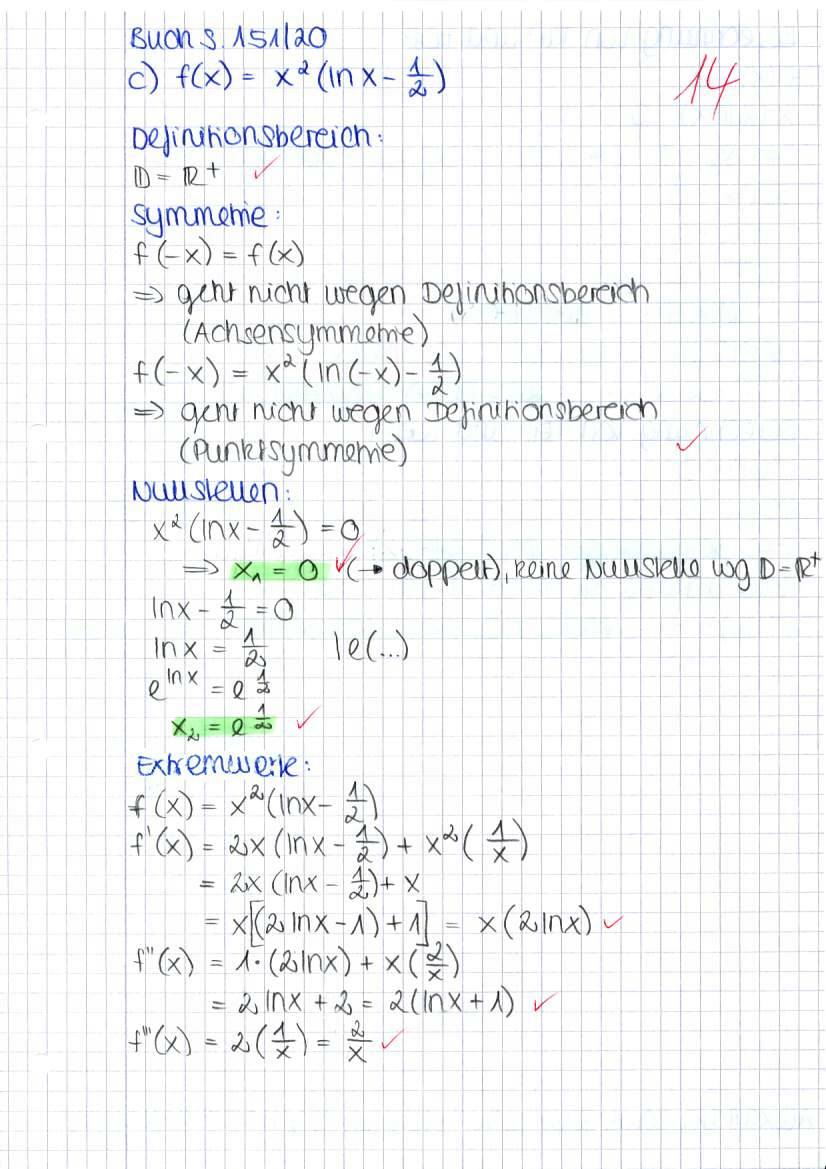 Buch S. 151/20
c) f(x) = x²(ln x - 1/2)
14
Definitionsbereich:
D = ℝ⁺ ✓
Symmetrie:
f(-x) = f(x)
=> geht nicht wegen Definitionsbereich
(Achsensymmetrie)
f(-x) = x²(ln(-x) - 1/2)
=> geht nicht wegen Definitionsbereich
(Punktsymmetrie) ✓
Nullstellen:
x²(ln x - 1/2) = 0
=> x₁ = 0 ✓ (→ doppelt), keine Nullstelle wg D = ℝ⁺
ln x - 1/2 = 0
ln x = 1/2 | e(...)
e^(ln x) = e^(1/2)
x₂ = e^(1/2) ✓
Extremwerte:
f(x) = x²(ln x - 1/2)
f'(x) = 2x(ln x - 1/2) + x²(1/x)
= 2x(ln x - 1/2) + x
= x[(2 ln x - 1) + 1] = x(2 ln x) ✓
f''(x) = 1·(2 ln x) + x(2/x)
= 2 ln x + 2 = 2(ln x + 1) ✓
f'''(x) = 2(1/x) = 2/x ✓